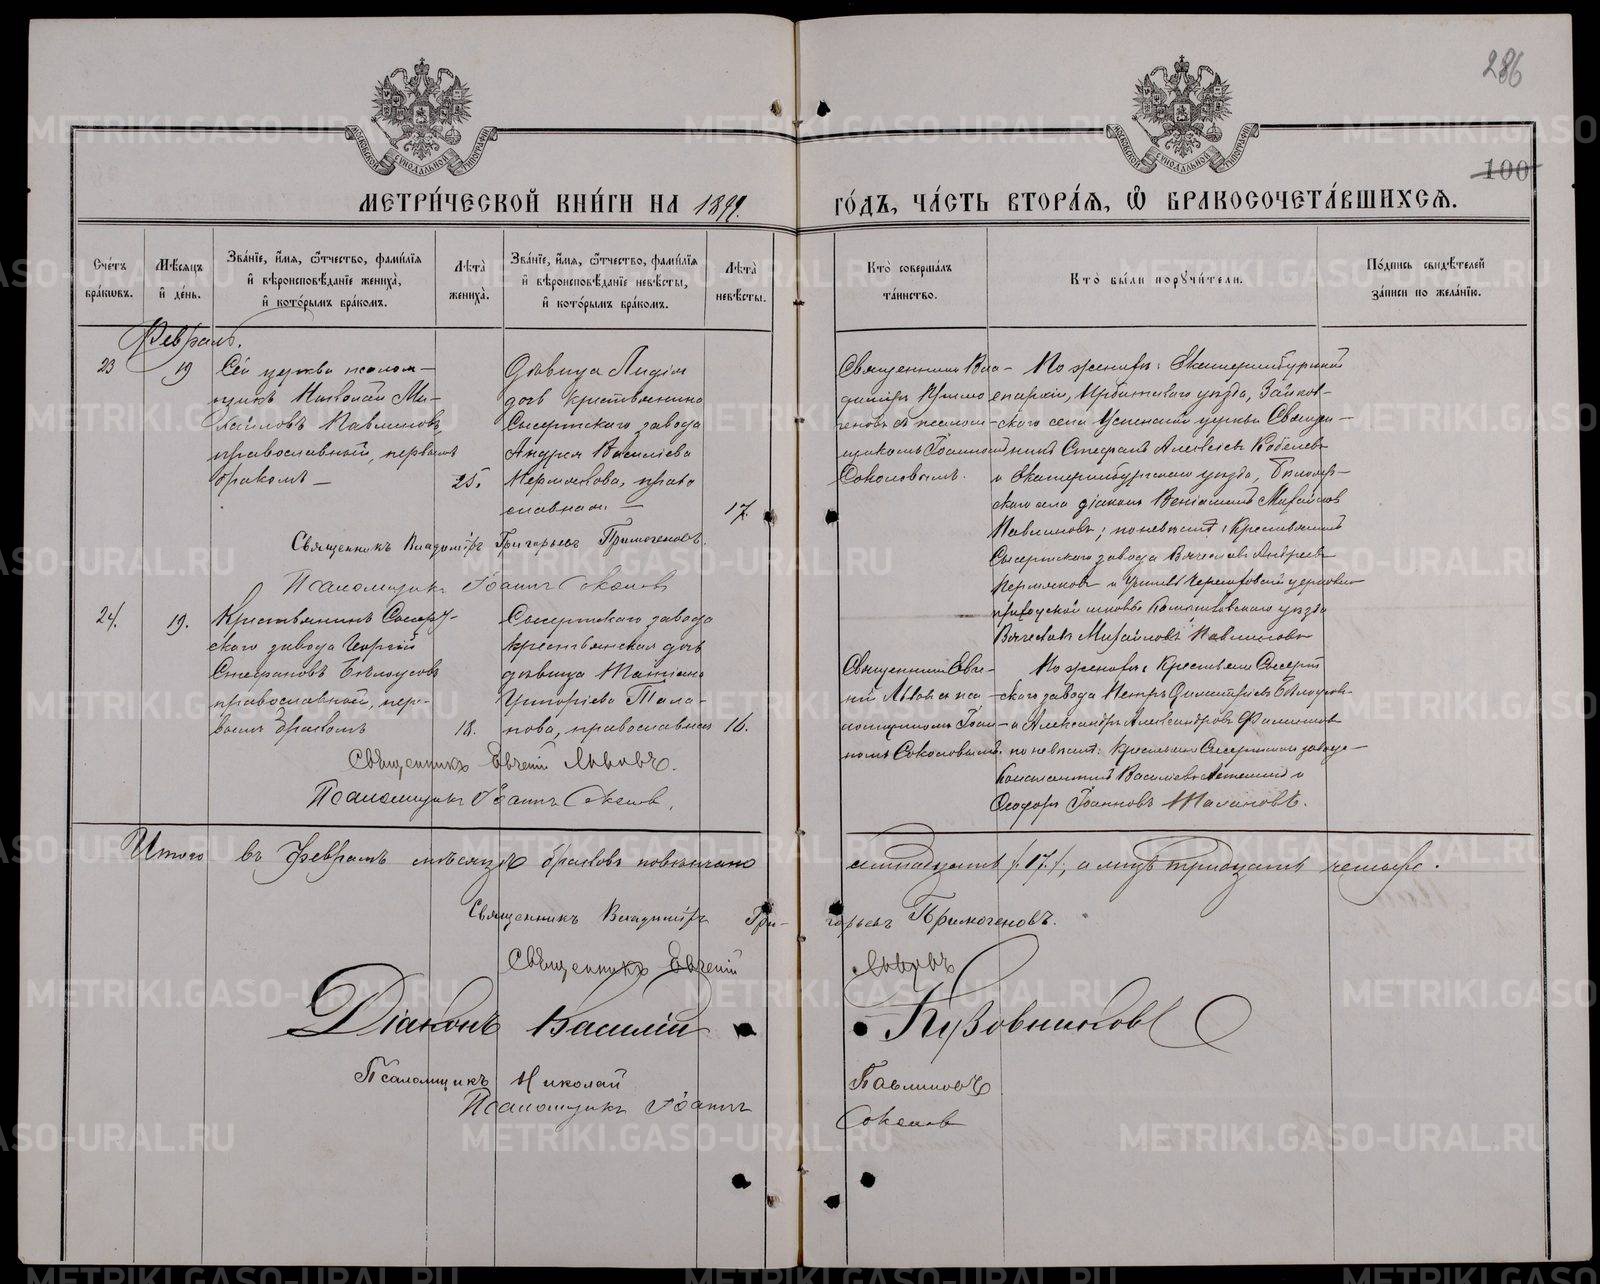 286
100
МОСКОВСКОЙ СѴНОДАЛЬНОЙ ТИПОГРАФІИ
МОСКОВСКОЙ СѴНОДАЛЬНОЙ ТИПОГРАФІИ
МЕТРИ́ЧЕСКОЙ КНИ́ГИ НА 1899.
ГО́ДЪ, ЧА́СТЬ ВТОРА́Я, Ѽ БРАКОСОЧЕТА́ВШИХСЯ.
Сче́тъ
бра́ковъ.
Мѣ́сяцъ
и҆ де́нь.
Зва́нїе, и҆́мя, ѻ҆́тчество, фами́лїя
и҆ вѣроисповѣ́данїе жениха̀,
и҆ кото́рымъ бра́комъ.
Лѣ́та
жениха̀.
Зва́нїе, и҆́мя, ѻ҆́тчество, фами́лїя
и҆ вѣроисповѣ́данїе невѣ́сты,
и҆ кото́рымъ бра́комъ.
Лѣ́та
невѣ́сты.
Кто̀ соверша́лъ
та́инство.
Кто̀ бы́ли порꙋчи́тели.
По́дпись свидѣ́телей
за́писи по жела́нїю.
Февраль.
23
19
Сей церкви псалом-
щикъ Николай Ми-
хайловъ Павлиновъ,
православный, первымъ
бракомъ –
25.
Дѣвица Лидія
дочь крестьянина
Сысертского завода
Андрея Василіева
Пермякова, право
славная. –
17.
Священникъ Вла-
диміръ Примо
геновъ съ псалом-
щикомъ Іоанномъ
Соколовымъ.
По женихѣ: Екатеринбургской
епархіи, Ирбитскаго уѣзда, Зайков-
скаго села Успенской церкви Священ-
никъ Стефанъ Алексѣевъ Кобелевъ
и Екатеринбургскаго уѣзда,
скаго села діаконъ Веніаминъ Михайловъ
Павлиновъ; по невѣстѣ: крестьянинъ
Сысертскаго завода Вячеславъ Андреевъ
Пермяковъ и Учитель церковно
приходской школы Камышловскаго уѣзда
Вячеславъ Михайловъ Павлиновъ
Священникъ Владиміръ Григорьевъ Примогеновъ.
Псаломщикъ Іоаннъ Соколовъ
24.
19.
Крестьянинъ Сысерт-
ского завода Георгій
Стефановъ Бѣлоусовъ
православный, пер-
вымъ бракомъ
18.
Сысертскаго завода
крестьянская дочь
дѣвица Татіана
Григоріева Тала-
нова, православная
16.
Священникъ Евге-
ній Львовъ съ пса
ломщикомъ Іоан-
номъ Соколовымъ.
По женихѣ: Крестьяне Сысерт-
скаго завода Петръ Димитріевъ Бѣлоусовъ
и Александръ Александровъ
по невѣстѣ: крестьяне Сысертскаго завода –
Константинъ Василіевъ и
Ѳеодоръ Іоанновъ Талановъ.
Священникъ Евгеній Львовъ.
Псаломщикъ Іоаннъ Соколовъ.
Итого въ февралѣ мѣсяцѣ браковъ повѣнчано
семнадцать /17/, а лицъ тридцать четыре.
Священникъ Владиміръ Гри-
горьевъ Примогеновъ.
Священникъ Евгеній
Львовъ
Діаконъ Василій
Кузовниковъ
Псаломщикъ Николай
Павлиновъ
Псаломщикъ Іоаннъ
Соколовъ
METRIKI.GASO-URAL.RU